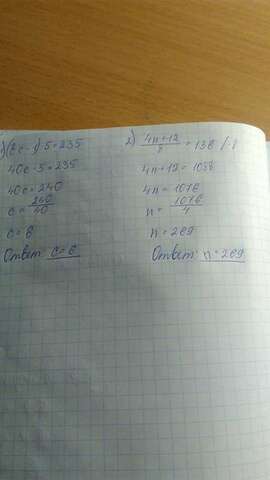 1)(8c-1)·5=235
40c-5=235
40c=240
c=240/40
c=6
Ответ: c=6
2) (4n+12)/8=136 /·8
4n+12=1088
4n=1076
n=1076/4
n=269
Ответ: n=269